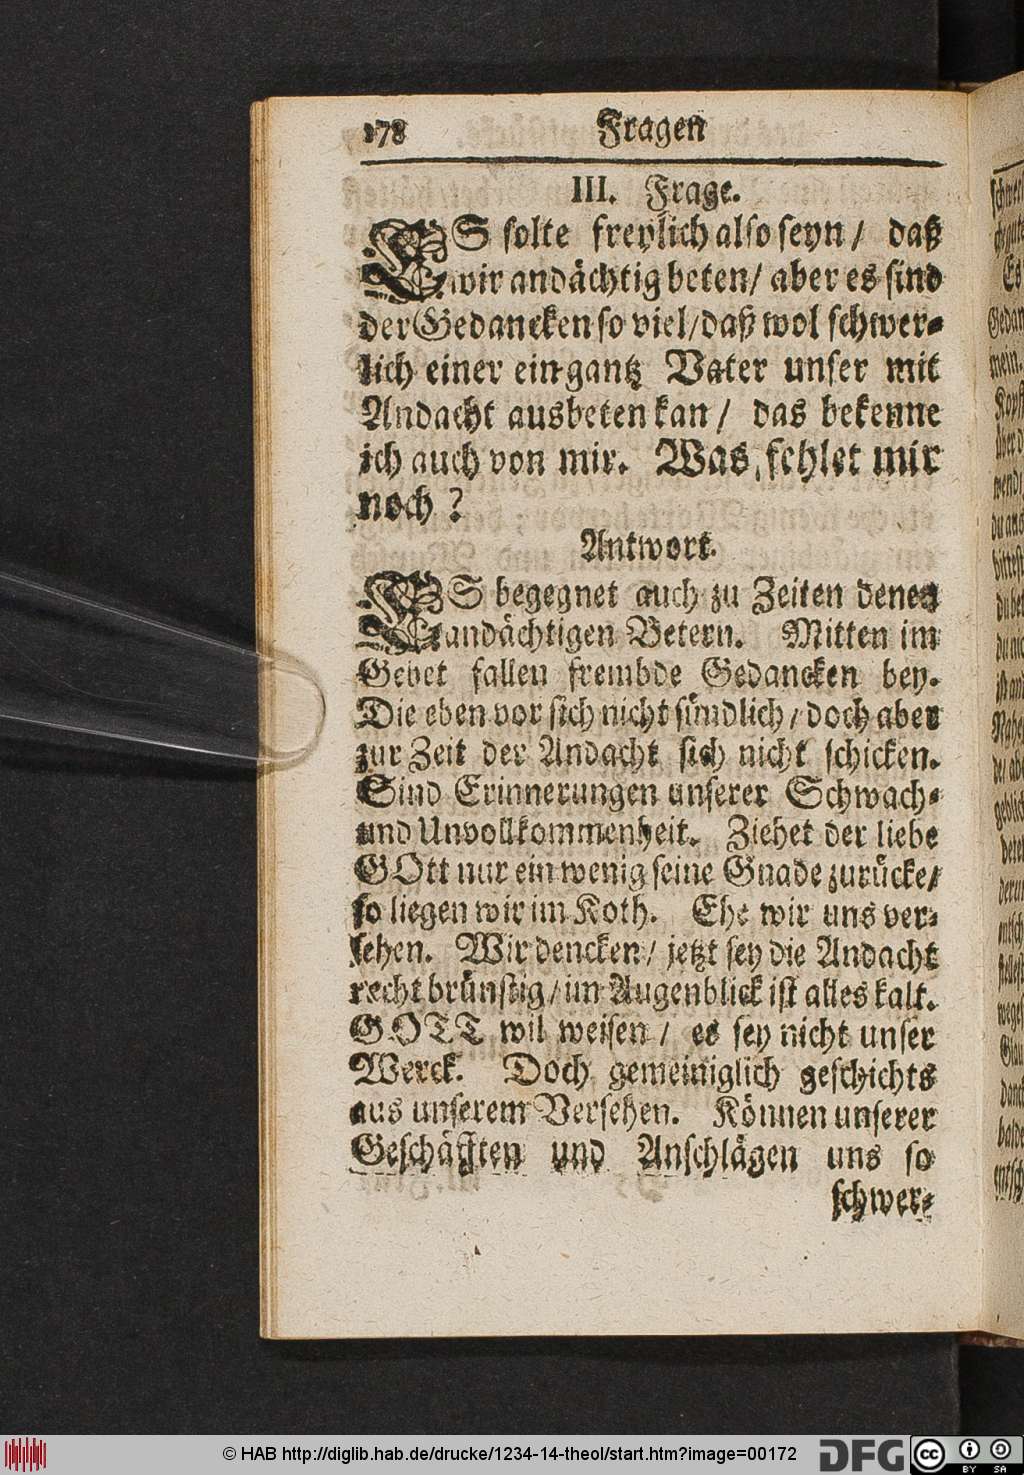 178 Fragen
III. Frage.
ES solte freylich also seyn / daß
wir andächtig beten / aber es sind
der Gedancken so viel / daß wol schwer-
lich einer ein gantz Vater unser mit
Andacht ausbeten kan / das bekenne
ich auch von mir. Was fehlet mir
noch?
Antwort.
ES begegnet auch zu Zeiten denen
andächtigen Betern. Mitten im
Gebet fallen frembde Gedancken bey.
Die eben vor sich nicht sündlich / doch aber
zur Zeit der Andacht sich nicht schicken.
Sind Erinnerungen unserer Schwach-
und Unvollkommenheit. Ziehet der liebe
GOtt nur ein wenig seine Gnade zurücke /
so liegen wir im Koth. Ehe wir uns ver-
sehen. Wir dencken / jetzt sey die Andacht
recht brünstig / im Augenblick ist alles kalt.
GOTT wil weisen / es sey nicht unser
Werck. Doch gemeiniglich geschichts
aus unserem Versehen. Können unserer
Geschäfften und Anschlägen uns so
schwer-
© HAB http://diglib.hab.de/drucke/1234-14-theol/start.htm?image=00172
DFG
cc BY SA